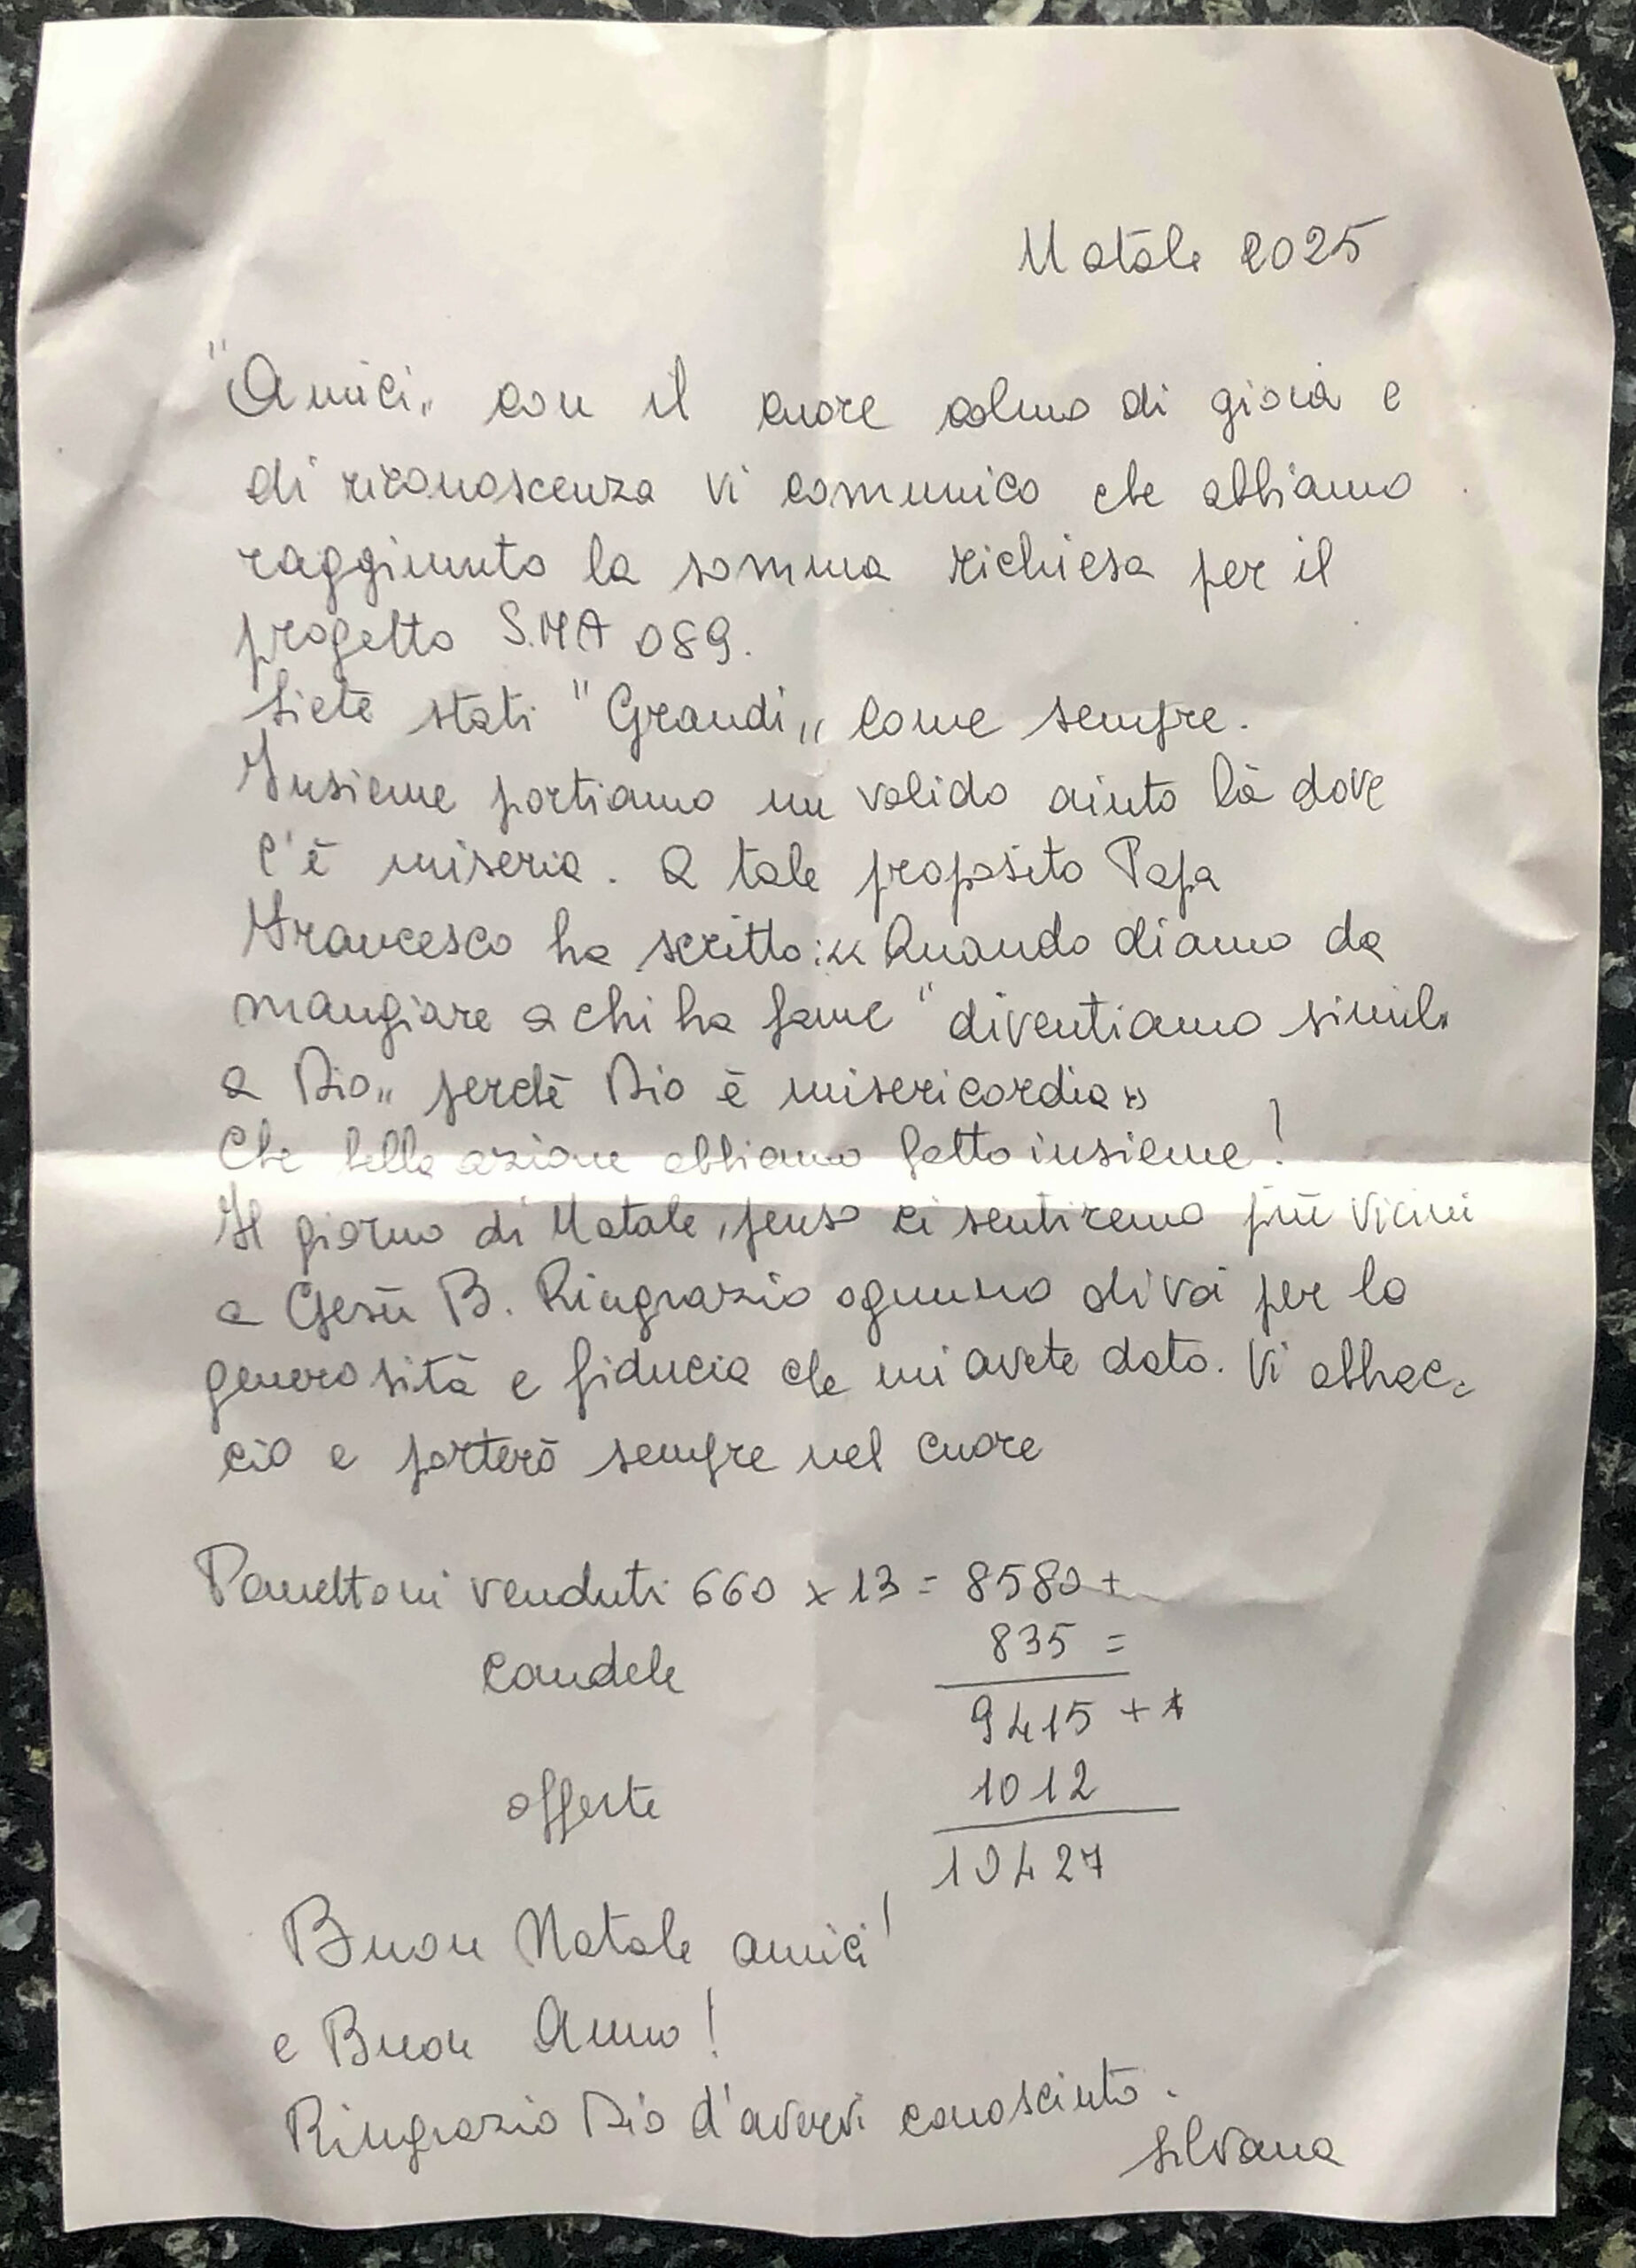 Natale 2025
"Amici" con il cuore colmo di gioia e
di riconoscenza vi comunico che abbiamo
raggiunto la somma richiesa per il
progetto S.MA 089.
Siete stati "Grandi" come sempre.
Insieme portiamo un valido aiuto là dove
c'è miseria. A tale proposito Papa
Francesco ha scritto: «Quando diamo da
mangiare a chi ha fame "diventiamo simili
a Dio" perchè Dio è misericordia»
Che bella azione abbiamo fatto insieme!
Il giorno di Natale, penso ci sentiremo più vicini
a Gesù B. Ringrazio ognuno di voi per la
generosità e fiducia che mi avete dato. Vi abbrac=
cio e porterò sempre nel cuore
Panettoni venduti 660 x 13 = 8580 +
candele 835 =
9415 + +
offerte 1012
10427
Buon Natale amici!
e Buon Anno!
Ringrazio Dio d'avervi conosciuto.
Silvana